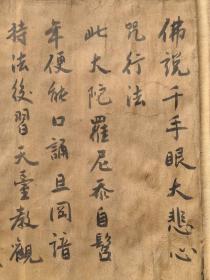 佛說千手眼大悲心
咒行法
此大陀羅尼忝自髫
年便能口誦且罔諳
持法後習天臺教觀